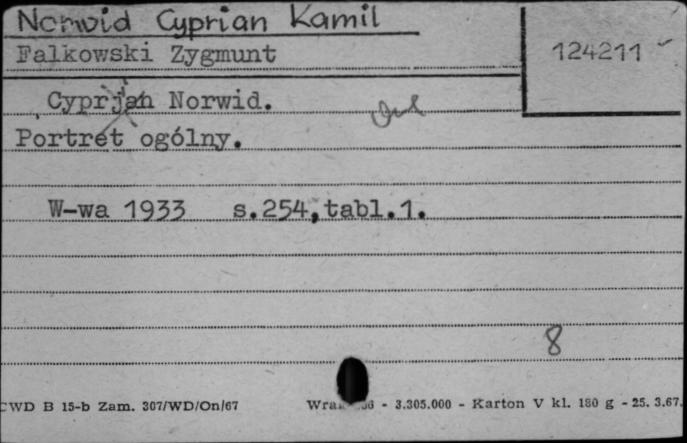 Norwid Cyprian Kamil
Falkowski Zygmunt
124211
Cyprjan Norwid.
Portret ogólny.
W-wa 1933 s.254,tabl.1.
8
CWD B 15-b Zam. 307/WD/On/67
- 3.305.000 - Karton V kl. 180 g - 25. 3.67.